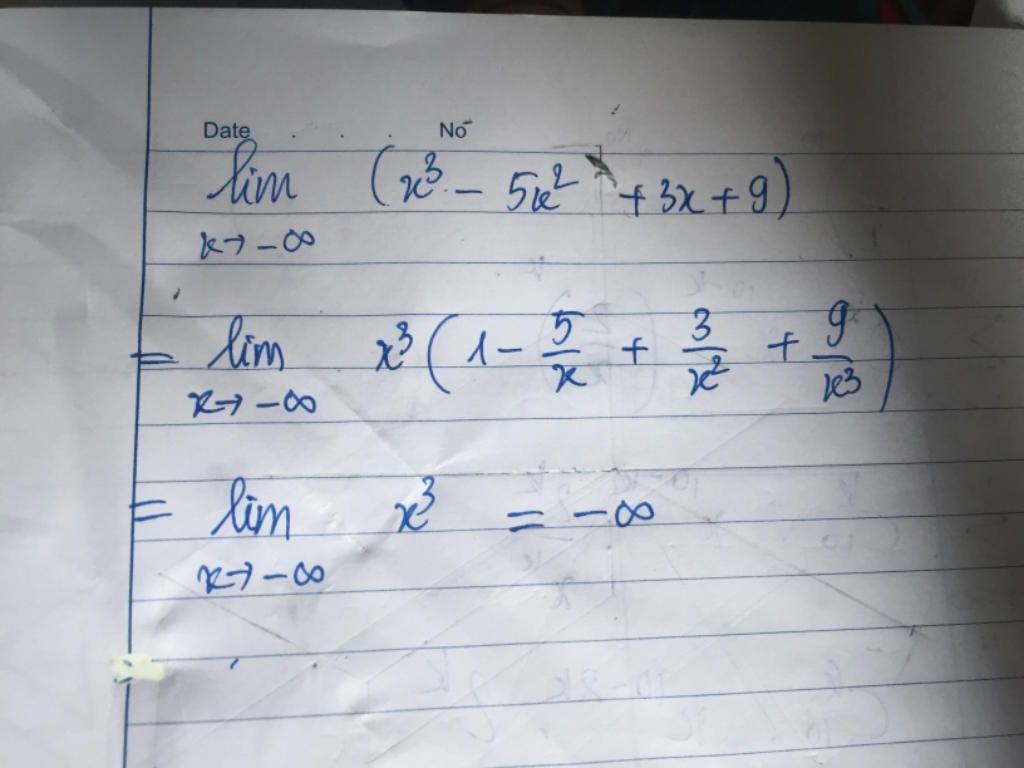 Date . . . No
lim (x³ - 5x² + 3x + 9)
x→ -∞
= lim x³ (1 - 5/x + 3/x² + 9/x³)
x→ -∞
= lim x³ = -∞
x→ -∞